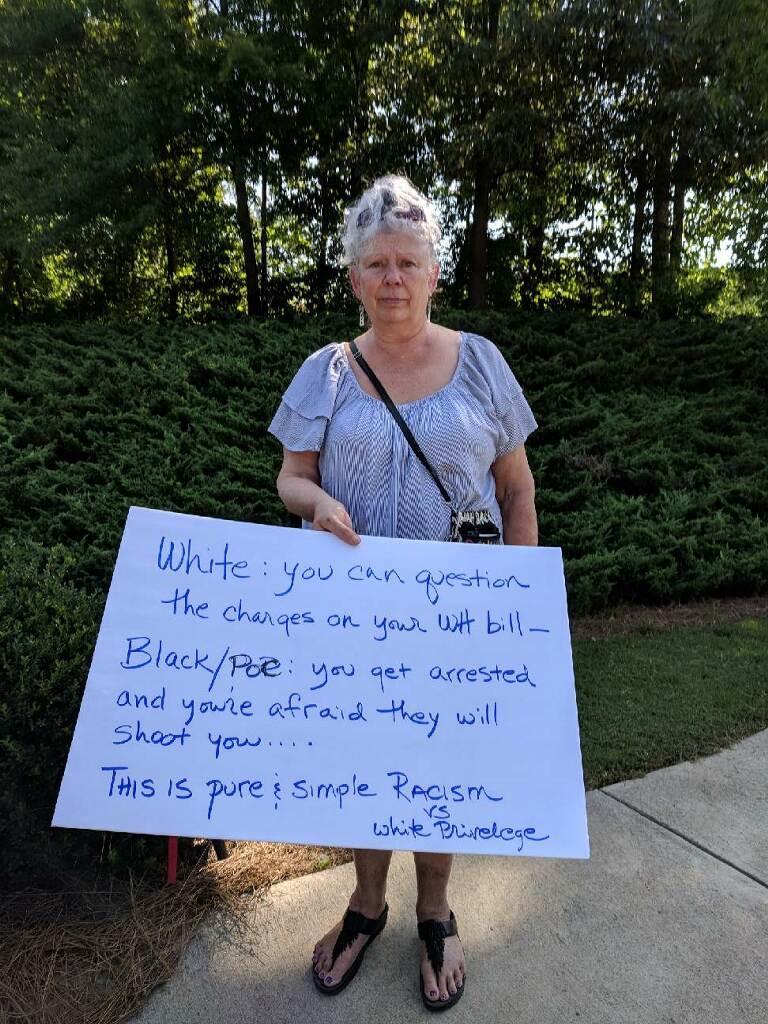 White: you can question
the charges on your WH bill—
Black/POC: you get arrested
and you're afraid they will
shoot you....
THIS IS pure & simple RACISM
vs
white Privelege